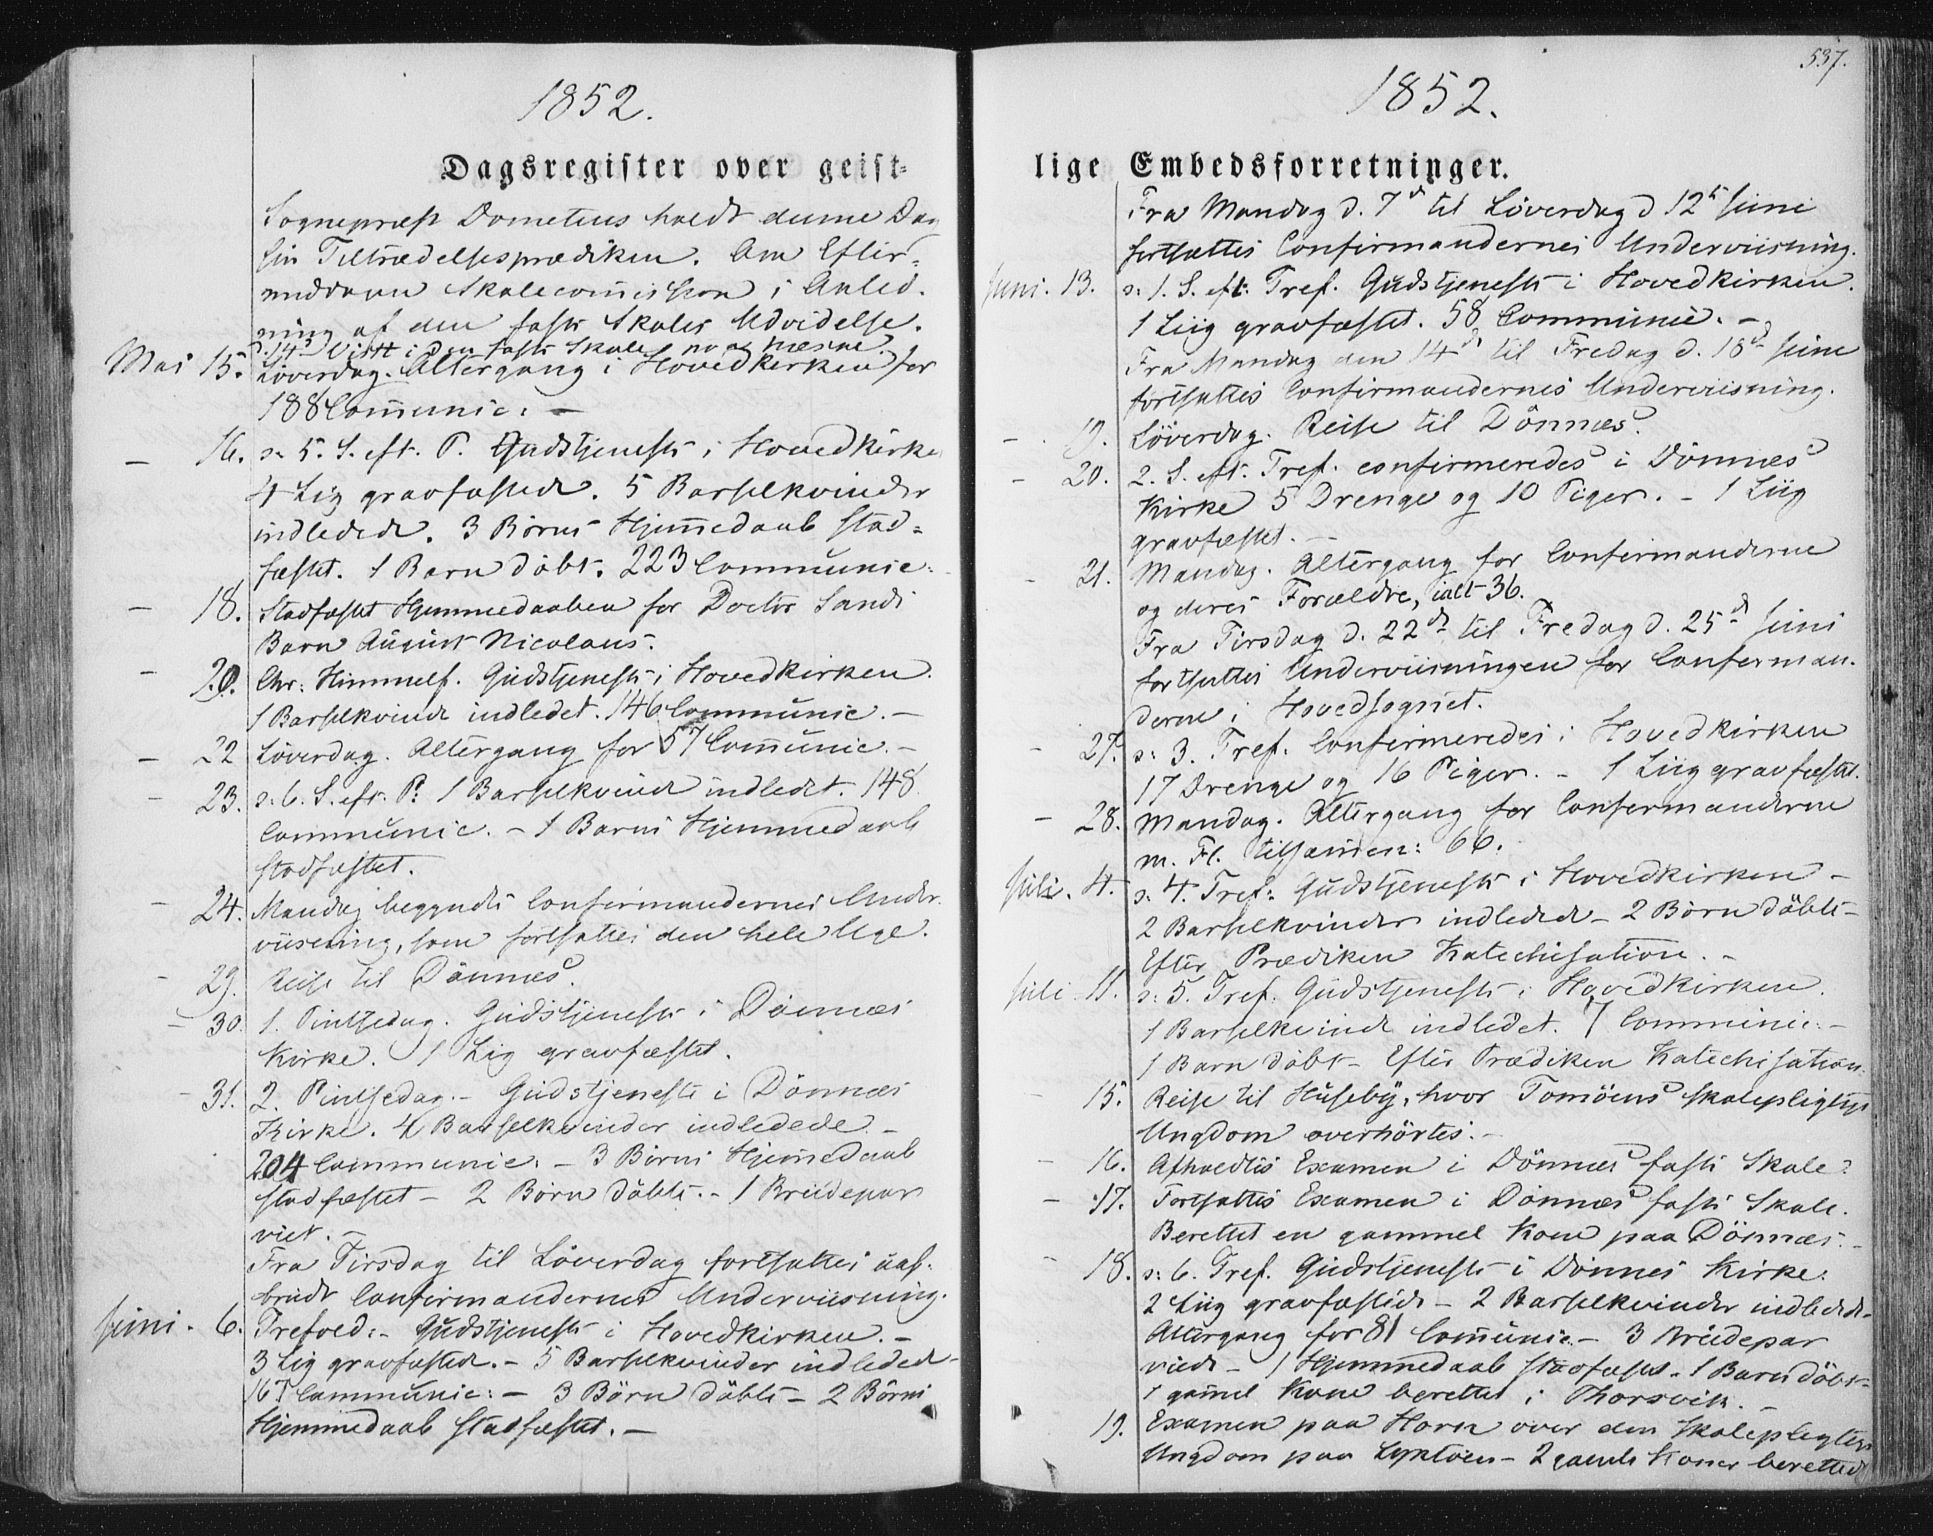 1852.
Dagsregister over geist-
Sognepræst Dometius holdt denne Dag
sin Tiltrædelsesprædiken. Om Efter-
middagen Skolecommission i Anled-
ning af den faste Skoles Udvidelse.
d. 14de i den faste Skole
Mai 15. Löverdag. Altergang i Hovedkirken for
188 Com̄unic: –
– 16. s: 5. S. eft. P. Gudstjeneste i Hovedkirke
4 Lig gravfæstede. 5 Barselkvinder
indledede. 3 Börns Hjem̄edaab stad-
fæstet. 1 Barn döbt. 223 Communic:
– 18. Stadfæstet Hjemmedaaben for Doctor Sands
Barn August Nicolaus.
– 20. Chr: Himmelf. Gudstjeneste i Hovedkirken.
1 Barselkvinde indledet. 146 Communic. –
– 22 Löverdag. Altergang for 57 Com̄unic. –
– 23. s: 6. S. eft. P: 1 Barselkvinde indledet. 148
Communic. – 1 Barns Hjemmedaab
stadfæstet.
– 24. Mandag begyndte Confirmandernes Under-
viisning, som fortsattes den hele Uge.
– 29. Reise til Dönnæs.
– 30. 1. Pintsedag. Gudstjeneste i Dönnæs
Kirke. 1 Lig gravfæstet.
– 31. 2. Pintsedag. – Gudstjeneste i Dönnæs
Kirke. 4 Barselkvinder indledede. –
204 Communic: – 3 Börns Hjem̄edaab
stadfæstet – 2 Börn döbte. – 1 Brudepar
viet. –
Fra Tirsdag til Löverdag fortsattes uaf-
brudt Confirmandernes Underviisning.
Juni. 6. Trefold: – Gudstjeneste i Hovedkirken. –
3 Lig gravfæstede. – 5 Barselkvinder indledede –
167 Communic: – 3 Börn döbte – 2 Börns
Hjemmedaab stadfæstet. –
537.
1852.
lige Embedsforretninger.
Fra Mandag d. 7de til Löverdag d 12te Juni
fortsattes Confirmandernes Underviisning.
Juni. 13. s: 1. S. eft: Tref. Gudstjeneste i Hovedkirken.
1 Liig gravfæstet. 58 Communic. –
Fra Mandag den 14de til Fredag d. 18de Juni
fortsattes Confirmandernes Underviisning.
– 19. Löverdag. Reise til Dönnæs.
– 20. 2. S. eft. Tref. confirmeredes i Dönnæs
Kirke 5 Drenge og 10 Piger. – 1 Liig
gravfæstet. –
– 21. Mandag. Altergang for Confirmanderne
og deres Forældre, ialt 36.
Fra Tirsdag d. 22de til Fredag d. 25de Juni
fortsattes Underviisningen for Confirman-
derne i Hovedsognet.
– 27. s: 3. Tref. Confirmeredes i Hovedkirken
17 Drenge og 16 Piger. – 1 Liig gravfæstet.
– 28. Mandag. Altergang for Confirmanderne
m. Fl. tilsam̄en: 66.
Juli. 4. s. 4. Tref: Gudstjeneste i Hovedkirken –
2 Barselkvinder indledede – 2 Börn döbte –
Efter Prædiken Katechisation. –
Juli 11. s: 5. Tref: Gudstjeneste i Hovedkirken.
1 Barselkvinde indledet. 7 Communic: –
1 Barn döbt – Efter Prædiken Katechisation.
– 15. Reise til Huseby, hvor Tomöens skolepligtige
Ungdom overhörtes. –
– 16. Afholdtes Examen i Dönnæs faste Skole.
– 17. Fortsattes Examen i Dönnæs faste Skole.
Berettet en gammel Kone paa Dönnæs. –
– 18. s: 6. Tref. Gudstjeneste i Dönnes Kirke.
2 Liig gravfæstede – 2 Barselkvinder indledede –
Altergang for 81 Com̄unic – 3 Brudepar
viede – 1 Hjemmedaab stadfæstet. 1 Barn döbt –
1 gam̄el Kone berettet i Thorsvik. –
19. Examen paa Horn over den skolepligtige
Ungdom paa – 2 gamle Koner berettede